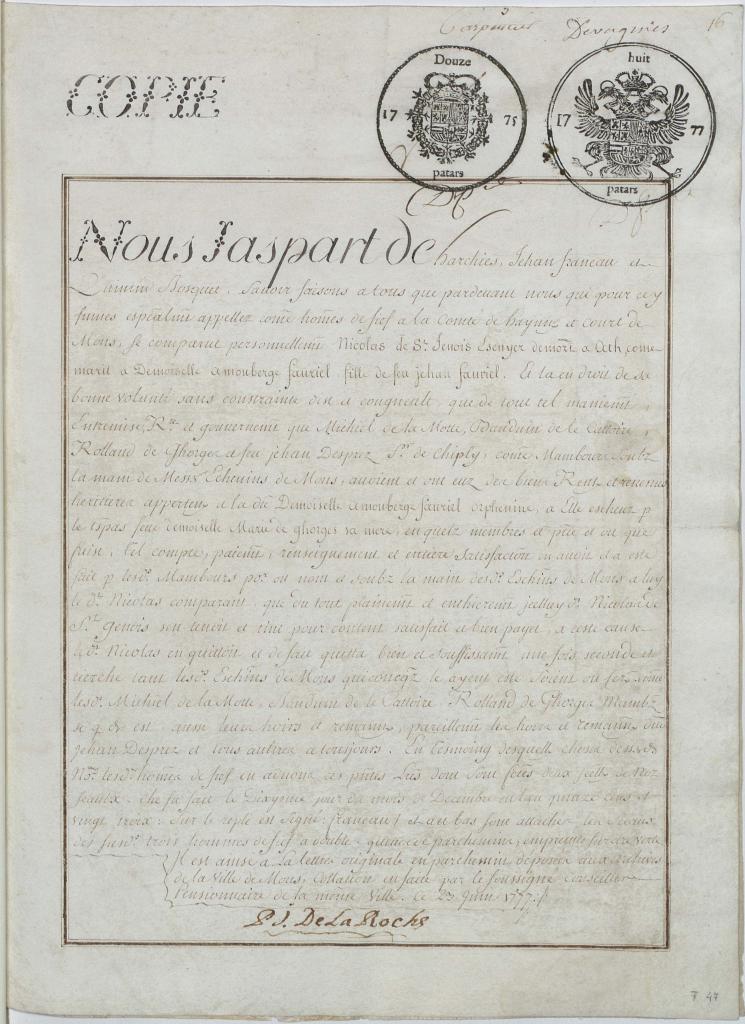 Carpentier Devergnies 16
COPIE
Douze
17 75
patars
huit
17 77
patars
Nous Jaspart de harchies, Jehan franeau et
Quintin Bosquet, Savoir faisons a tous que pardevant nous qui pour ce y
fumes espãlmt appellez come homes de fief a la Comté de haynnau et court de
Mons, se comparut personnellemt Nicolas de St Jenois Escuyer demort a Ath come
marit a Demoiselle amouberge fauriel fille de feu jehan fauriel. Et la en droit de sa
bonne volunté sans constrainte dist et congneult, que de tout tel maniemt,
Entremise, Rte et gouvernemt que Michiel de la Motte, Bauduin de le Cattoire,
Rolland de Ghorges et feu jehan Desprez Sr de Chiply, come Mambours soubz
la main de Messrs Echevins de Mons, avoient et ont eut des biens Rentes et revenus
heritteres apperten a la dte Demoiselle amouberge fauriel orphenine, a Elle escheuz p
le trspas feue demoiselle Marie de ghorges sa mere, en quelz membres et pties et ou que
fuise, tel compte, paiemt, renseignement et entiere satisfaction en avoit et a esté
fait p lesdts Mambours por ou nom et soubz la main desdts Eschins de Mons a luy
le dt Nicolas comparant, que du tout plainemt et enthieremt jcelluy dt Nicolas de
St Genois sen tenoit et tint pour content satisfait et bien payet, a ceste cause
le dt Nicolas en quittoit et de fait quitta bien et souffissamt une fois seconde et
tierche tant lesdts Eschins de Mons quiconcqz le ayent esté soient ou fez come
lesdts Michiel de la Motte, Bauduin de le Cattoire, Rolland de Ghorges Mambz
sc q dt est aussi leurs hoirs et remanns, pareillemt les hoirs et remanns dut
jehan Desprez et tous autres a tousjours. En tesmoing desquelles choses dessusdts
Nous lesdts homes de fief en avons ces pntes Lres dont sont fetes deux scellé de noz
seaulx. Che fu fait le Dixysme jour du mois de Decembre en lan quinze cens et
vingt troix. Sur le reple est signé franeau et au bas sont attachez les Sceaux
des susnt trois hommes de fief a double queue de parchemin, empreints sur cire verte
Il est ainsi a la lettre originale en parchemin deposée aux Archives
de la Ville de Mons, Collation en faite par le soussigné Conseiller
Pensionnaire de la meme Ville, le 23 Juin 1777.
P. J. De La Roche
7 47